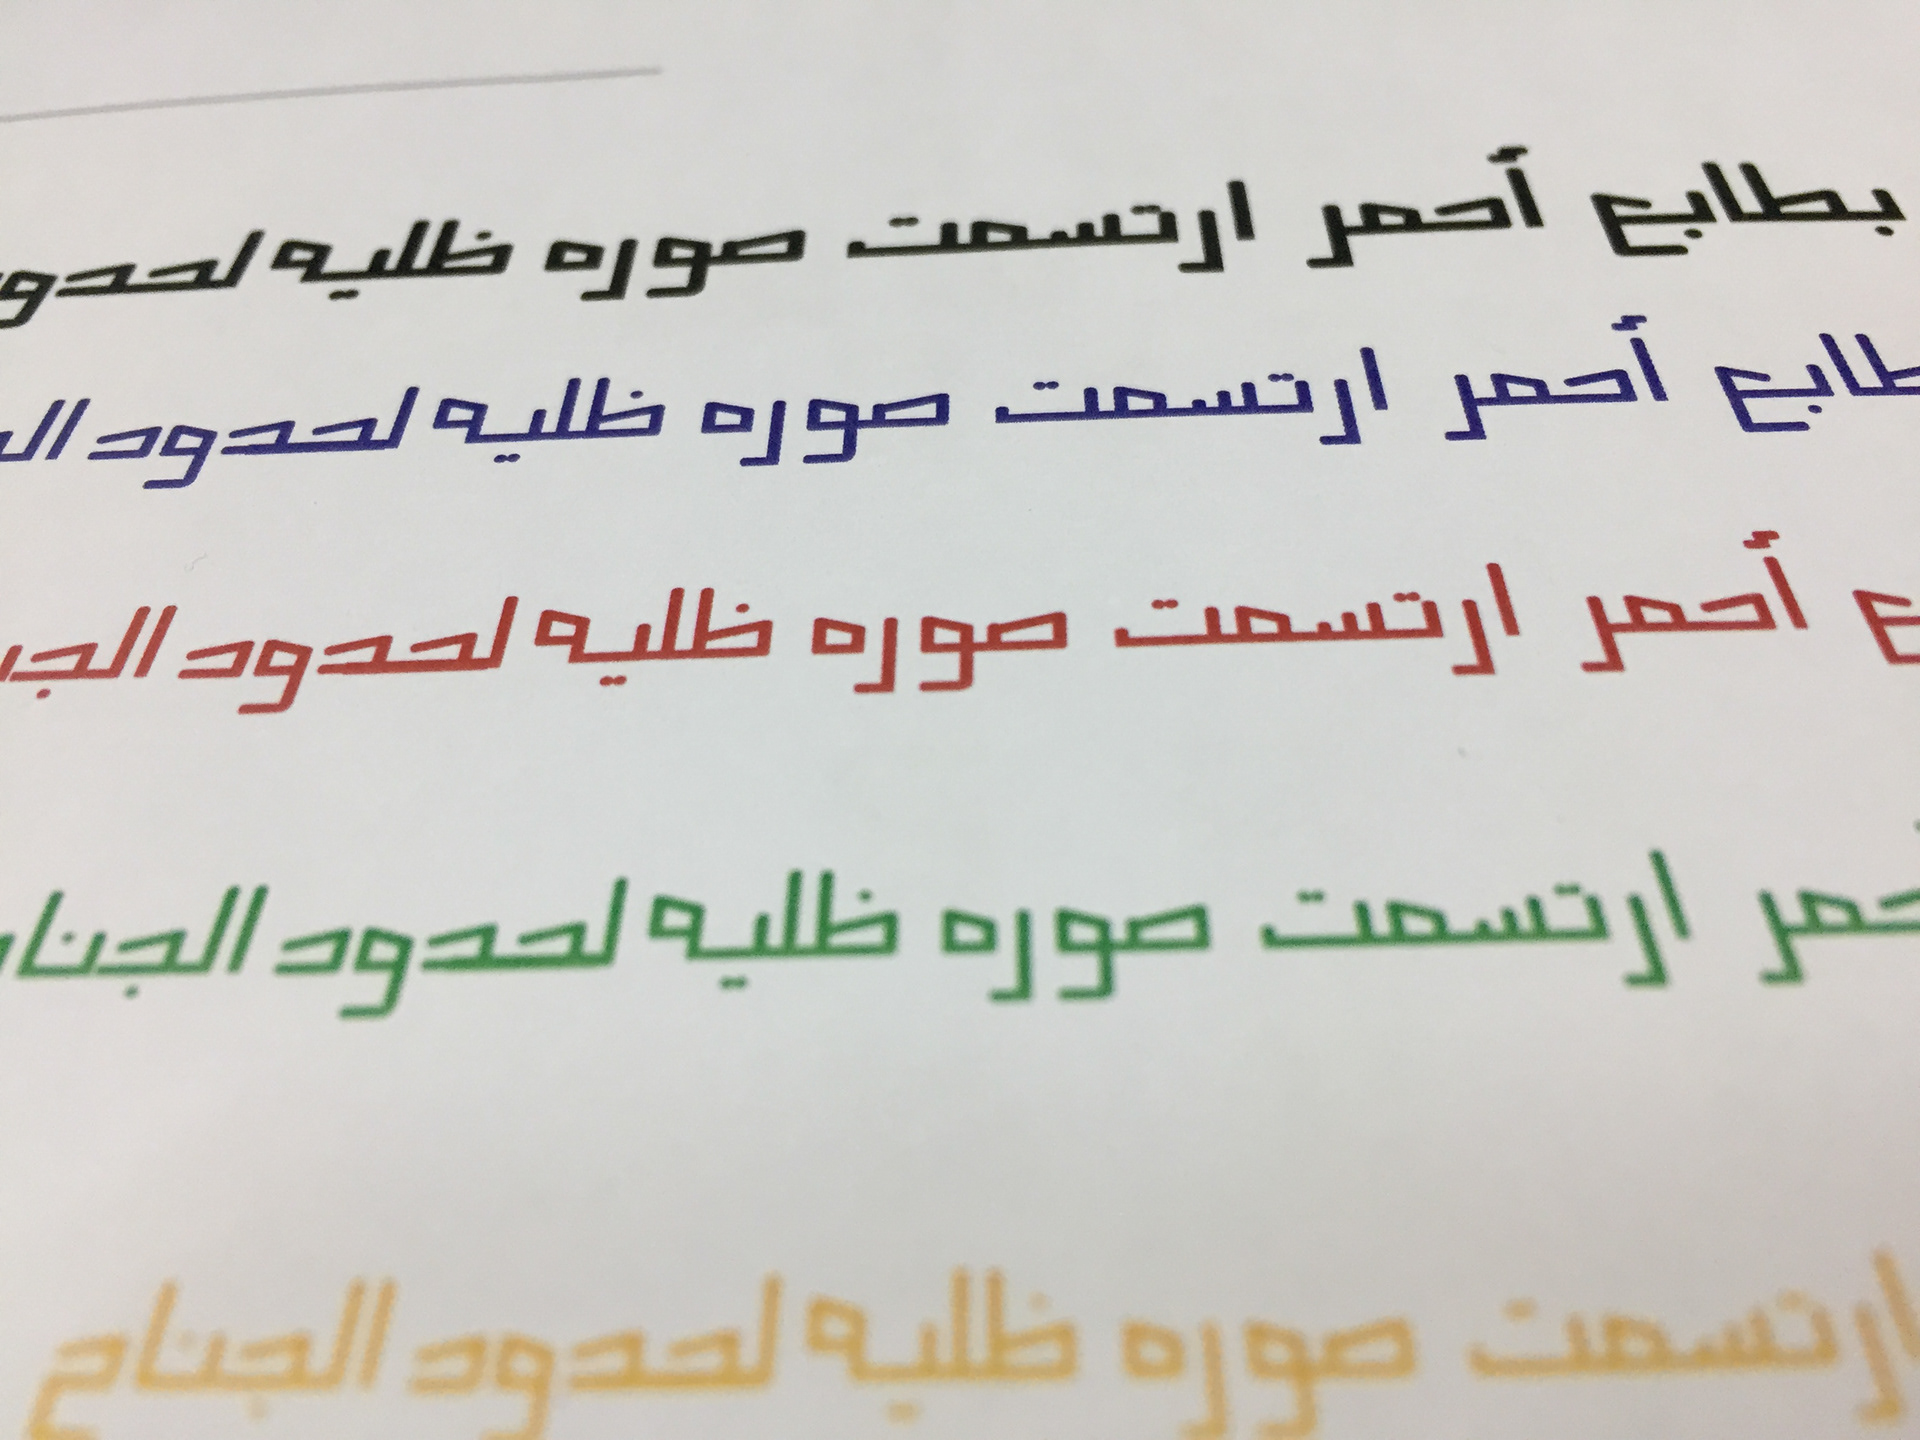 بطابع أحمر ارتسمت صوره ظليه لحدو
طابع أحمر ارتسمت صوره ظليه لحدود ال
ع أحمر ارتسمت صوره ظليه لحدود الجن
حمر ارتسمت صوره ظليه لحدود الجنا
ارتسمت صوره ظليه لحدود الجناح